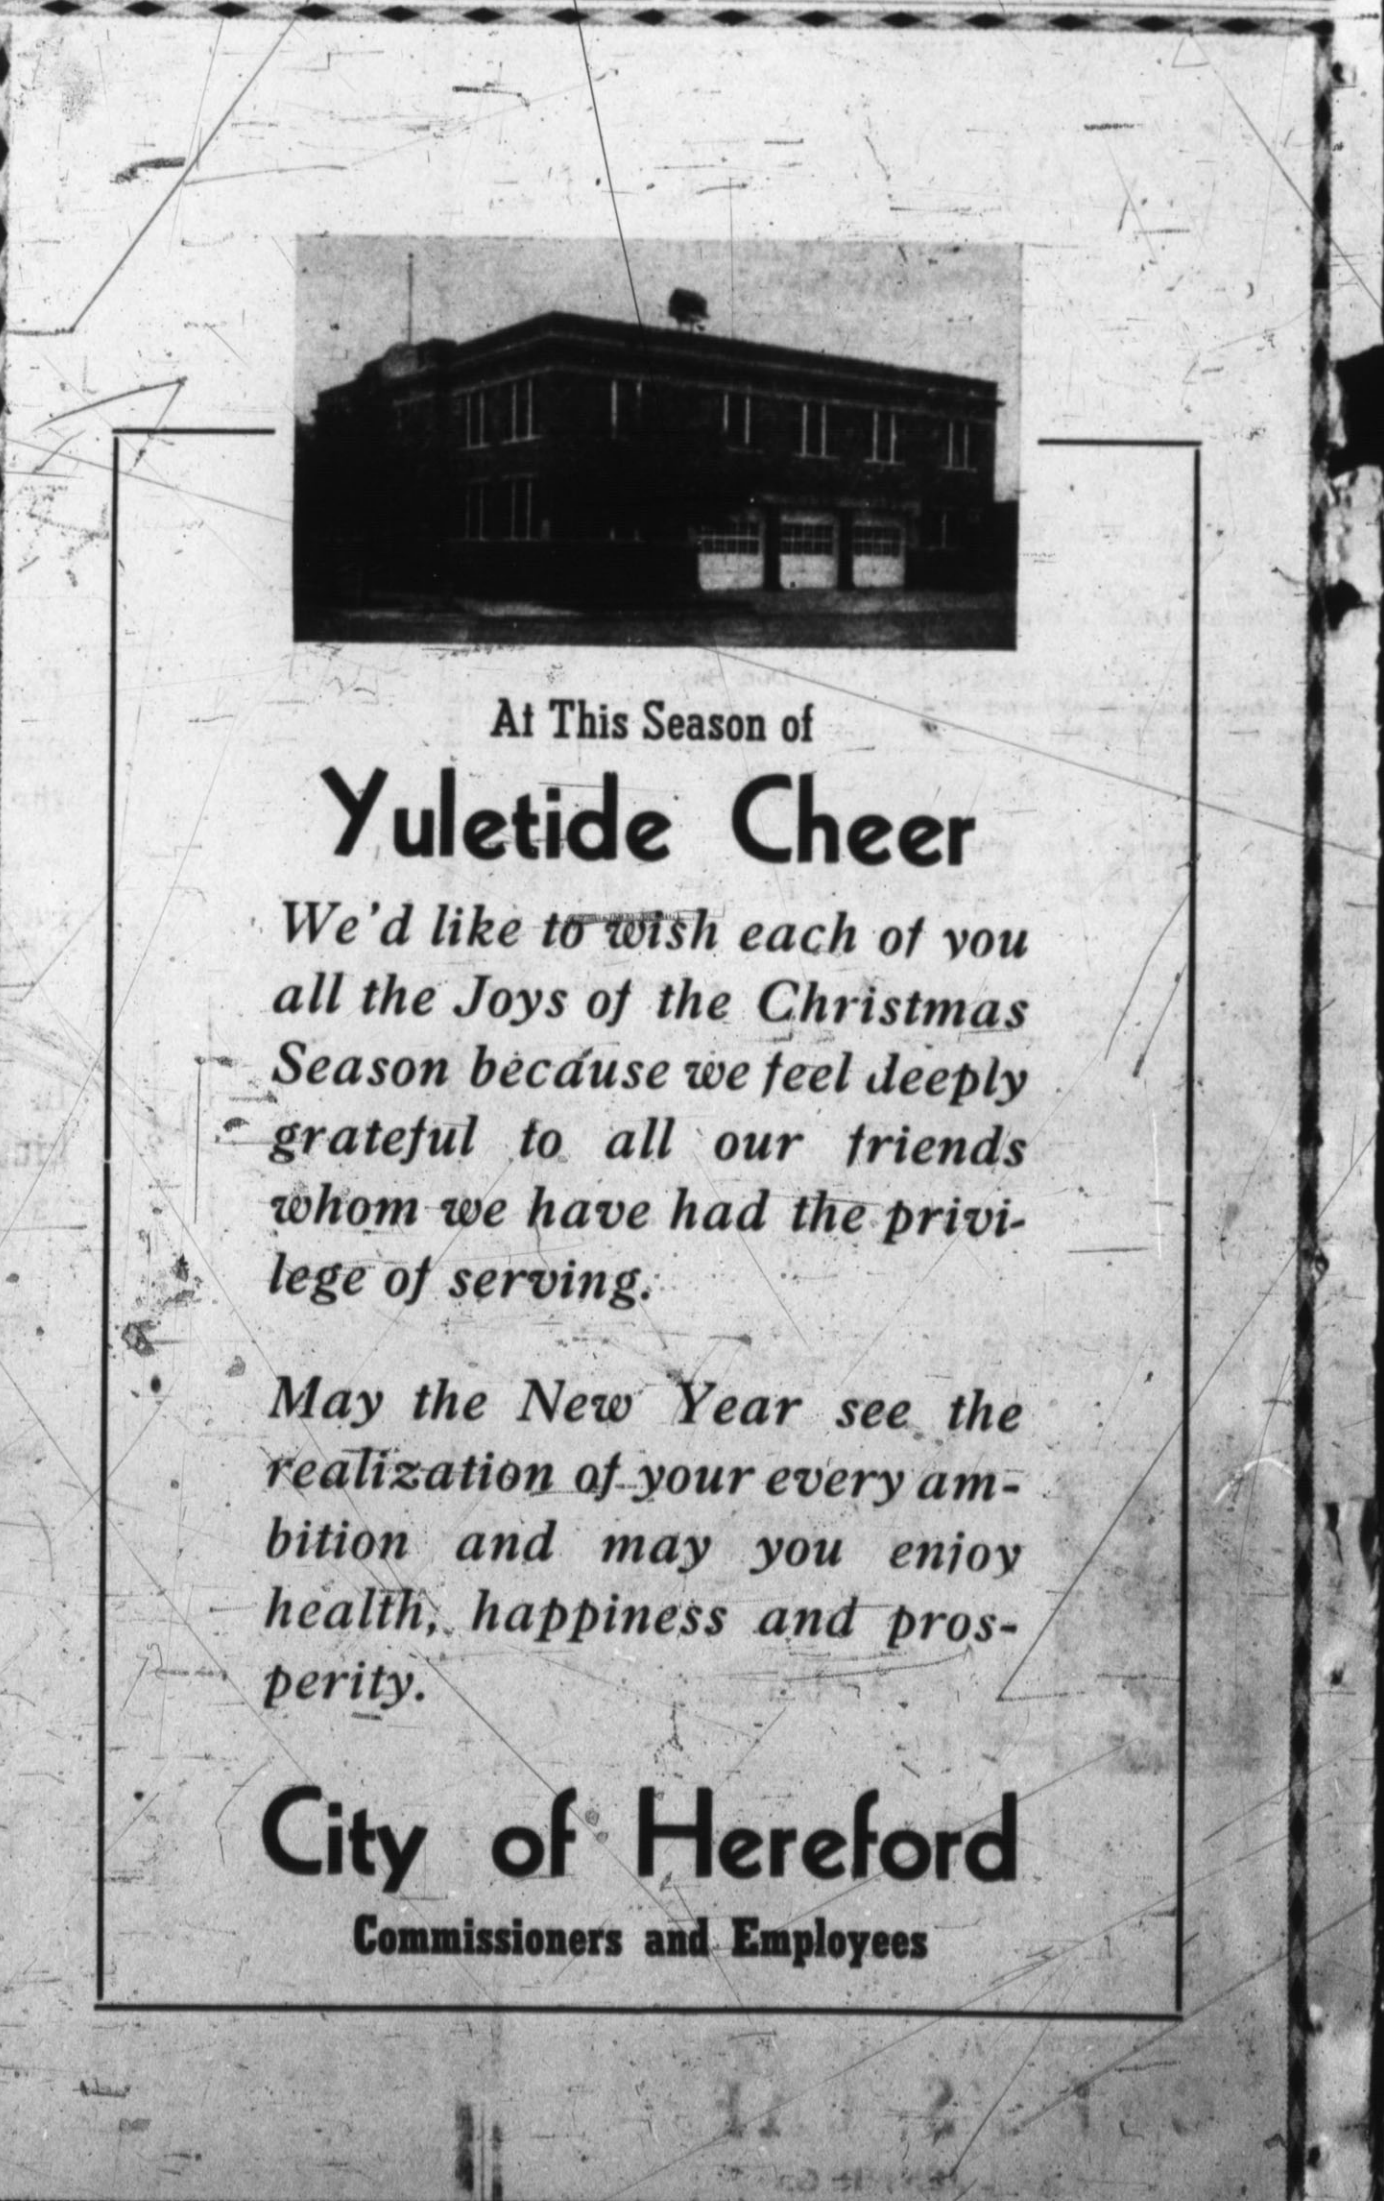 At This Season of
Yuletide Cheer
We'd like to wish each of you
all the Joys of the Christmas
Season because we feel deeply
grateful to all our friends
whom we have had the privi-
lege of serving.
May the New Year see the
realization of your every am-
bition and may you enjoy
health, happiness and pros-
perity.
City of Hereford
Commissioners and Employees